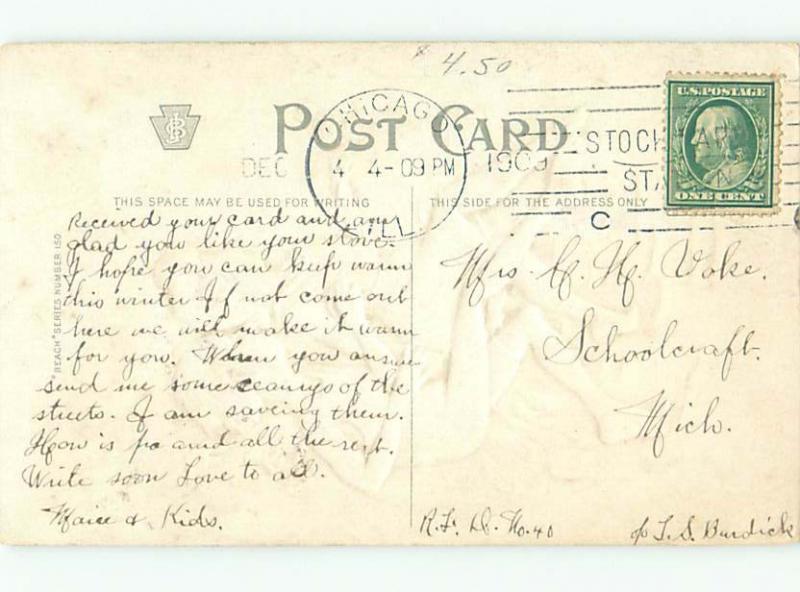 $4.50
U.S. POSTAGE
ONE CENT
POST CARD
CHICAGO
ILL.
DEC 4 4-09 PM 1909
STOCK YARDS
STA.
C
THIS SPACE MAY BE USED FOR WRITING
THIS SIDE FOR THE ADDRESS ONLY
"BEACH" SERIES NUMBER 150
Received your card and am
glad you like your stove.
I hope you can keep warm
this winter If not come out
here we will make it warm
for you. When you answer
send me some of the
streets. I am saveing them.
How is pa and all the rest.
Write soon Love to all.
& Kids.
Mrs. C. H. Voke.
Schoolcraft.
Mich.
R.F.D. No. 40
c/o L. S. Burdick